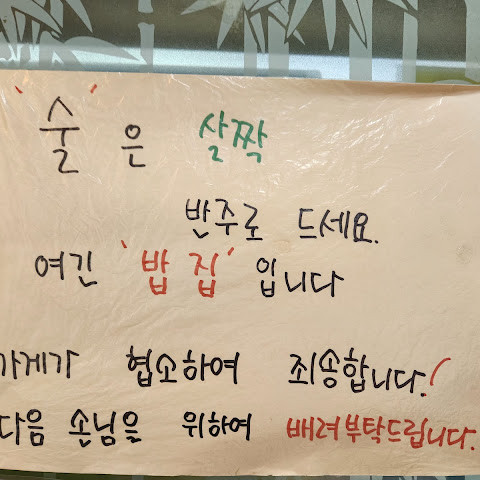 '술'은 살짝
반주로 드세요.
여긴 '밥집' 입니다
가게가 협소하여 죄송합니다!
다음 손님을 위하여 배려부탁드립니다.